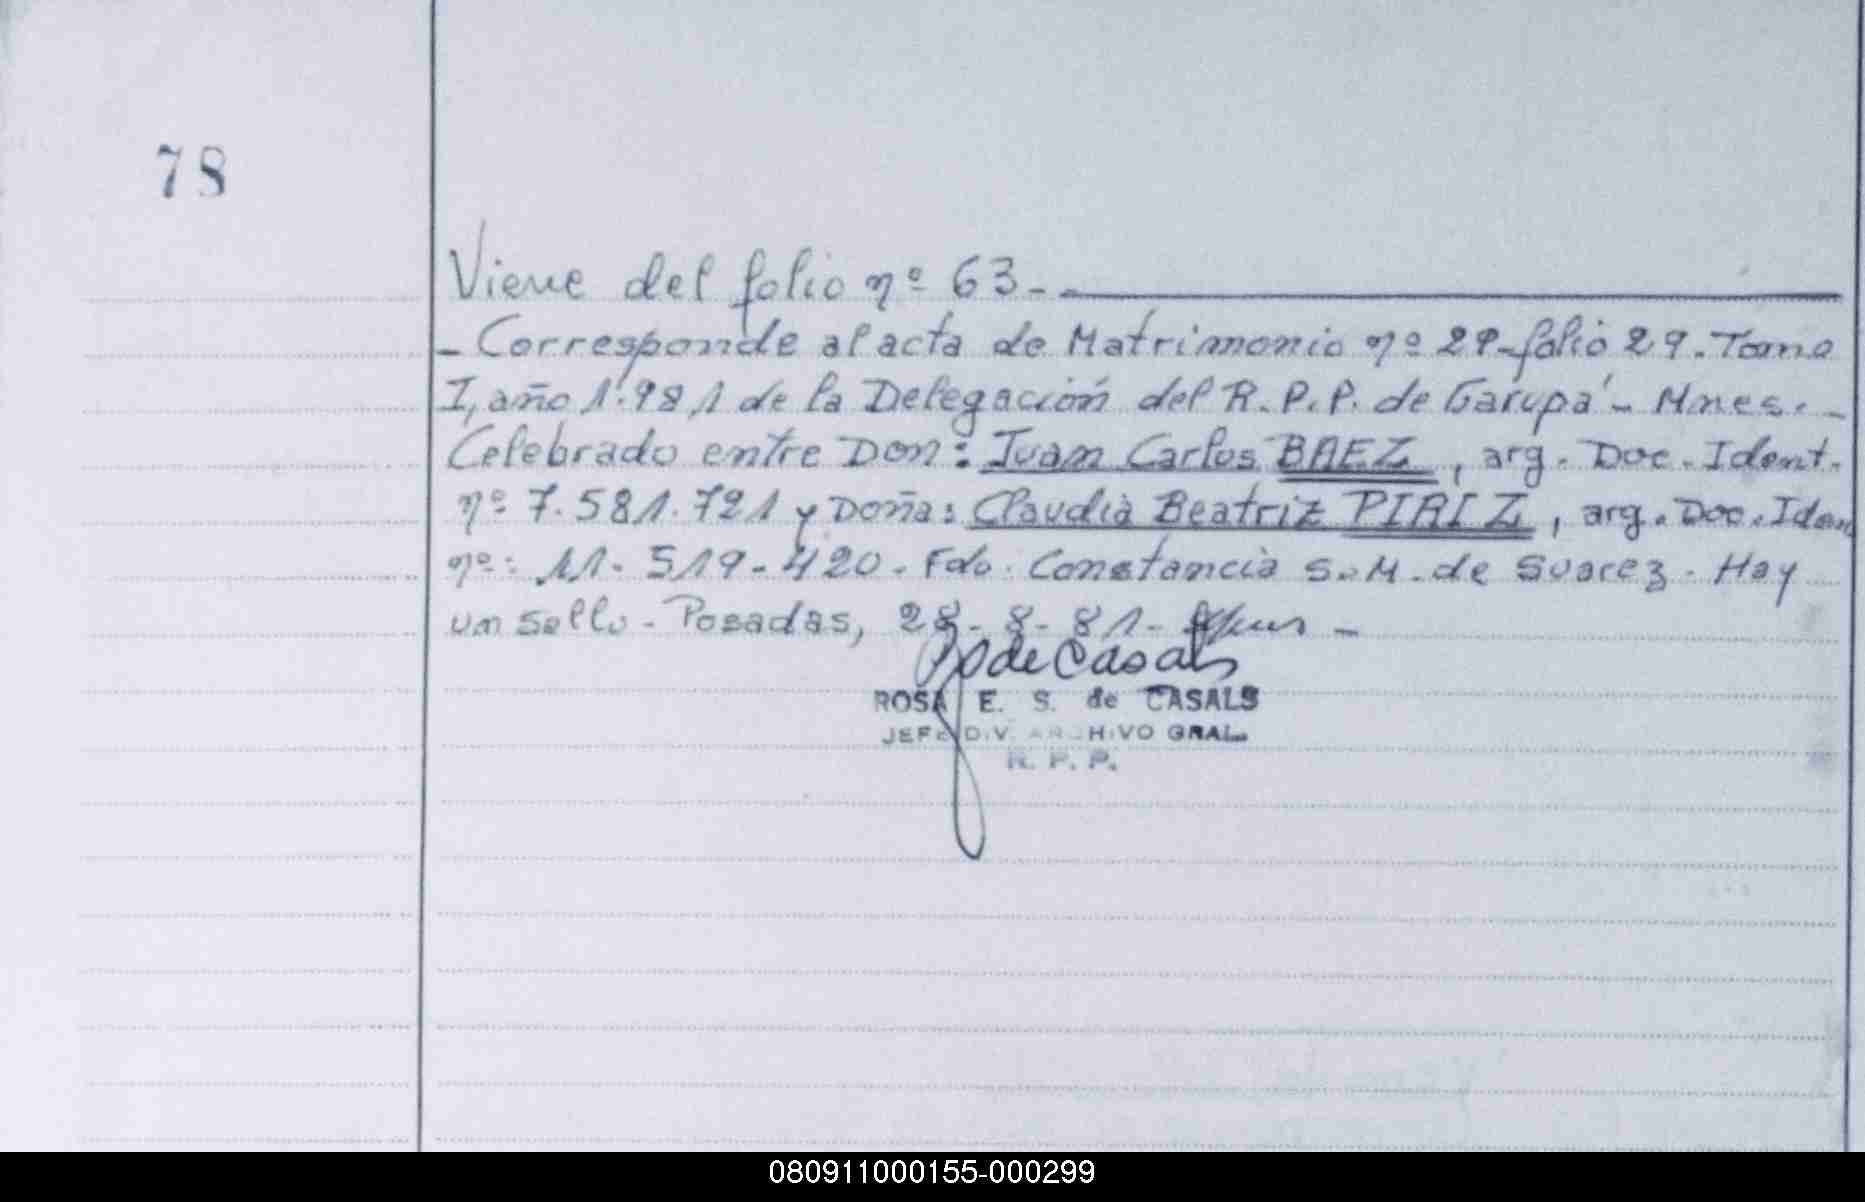 78
Viene del folio nº 63 - -
- Corresponde al acta de Matrimonio nº 29 - folio 29. Tomo
I, año 1.981 de la Delegación del R.P.P. de Garupá - Mnes. -
Celebrado entre Don: Juan Carlos BAEZ, arg. Doc. Ident.
nº 7.581.721 y Doña: Claudia Beatriz PIRIZ, arg. Doc. Iden
nº: 11.519.420. Fdo. Constancia S. M. de Suarez. Hay
un sello - Posadas, 28-8-81 - -
de Casals
ROSA E. S. de CASALS
JEFE DIV. ARCHIVO GRAL.
R. P. P.
080911000155-000299